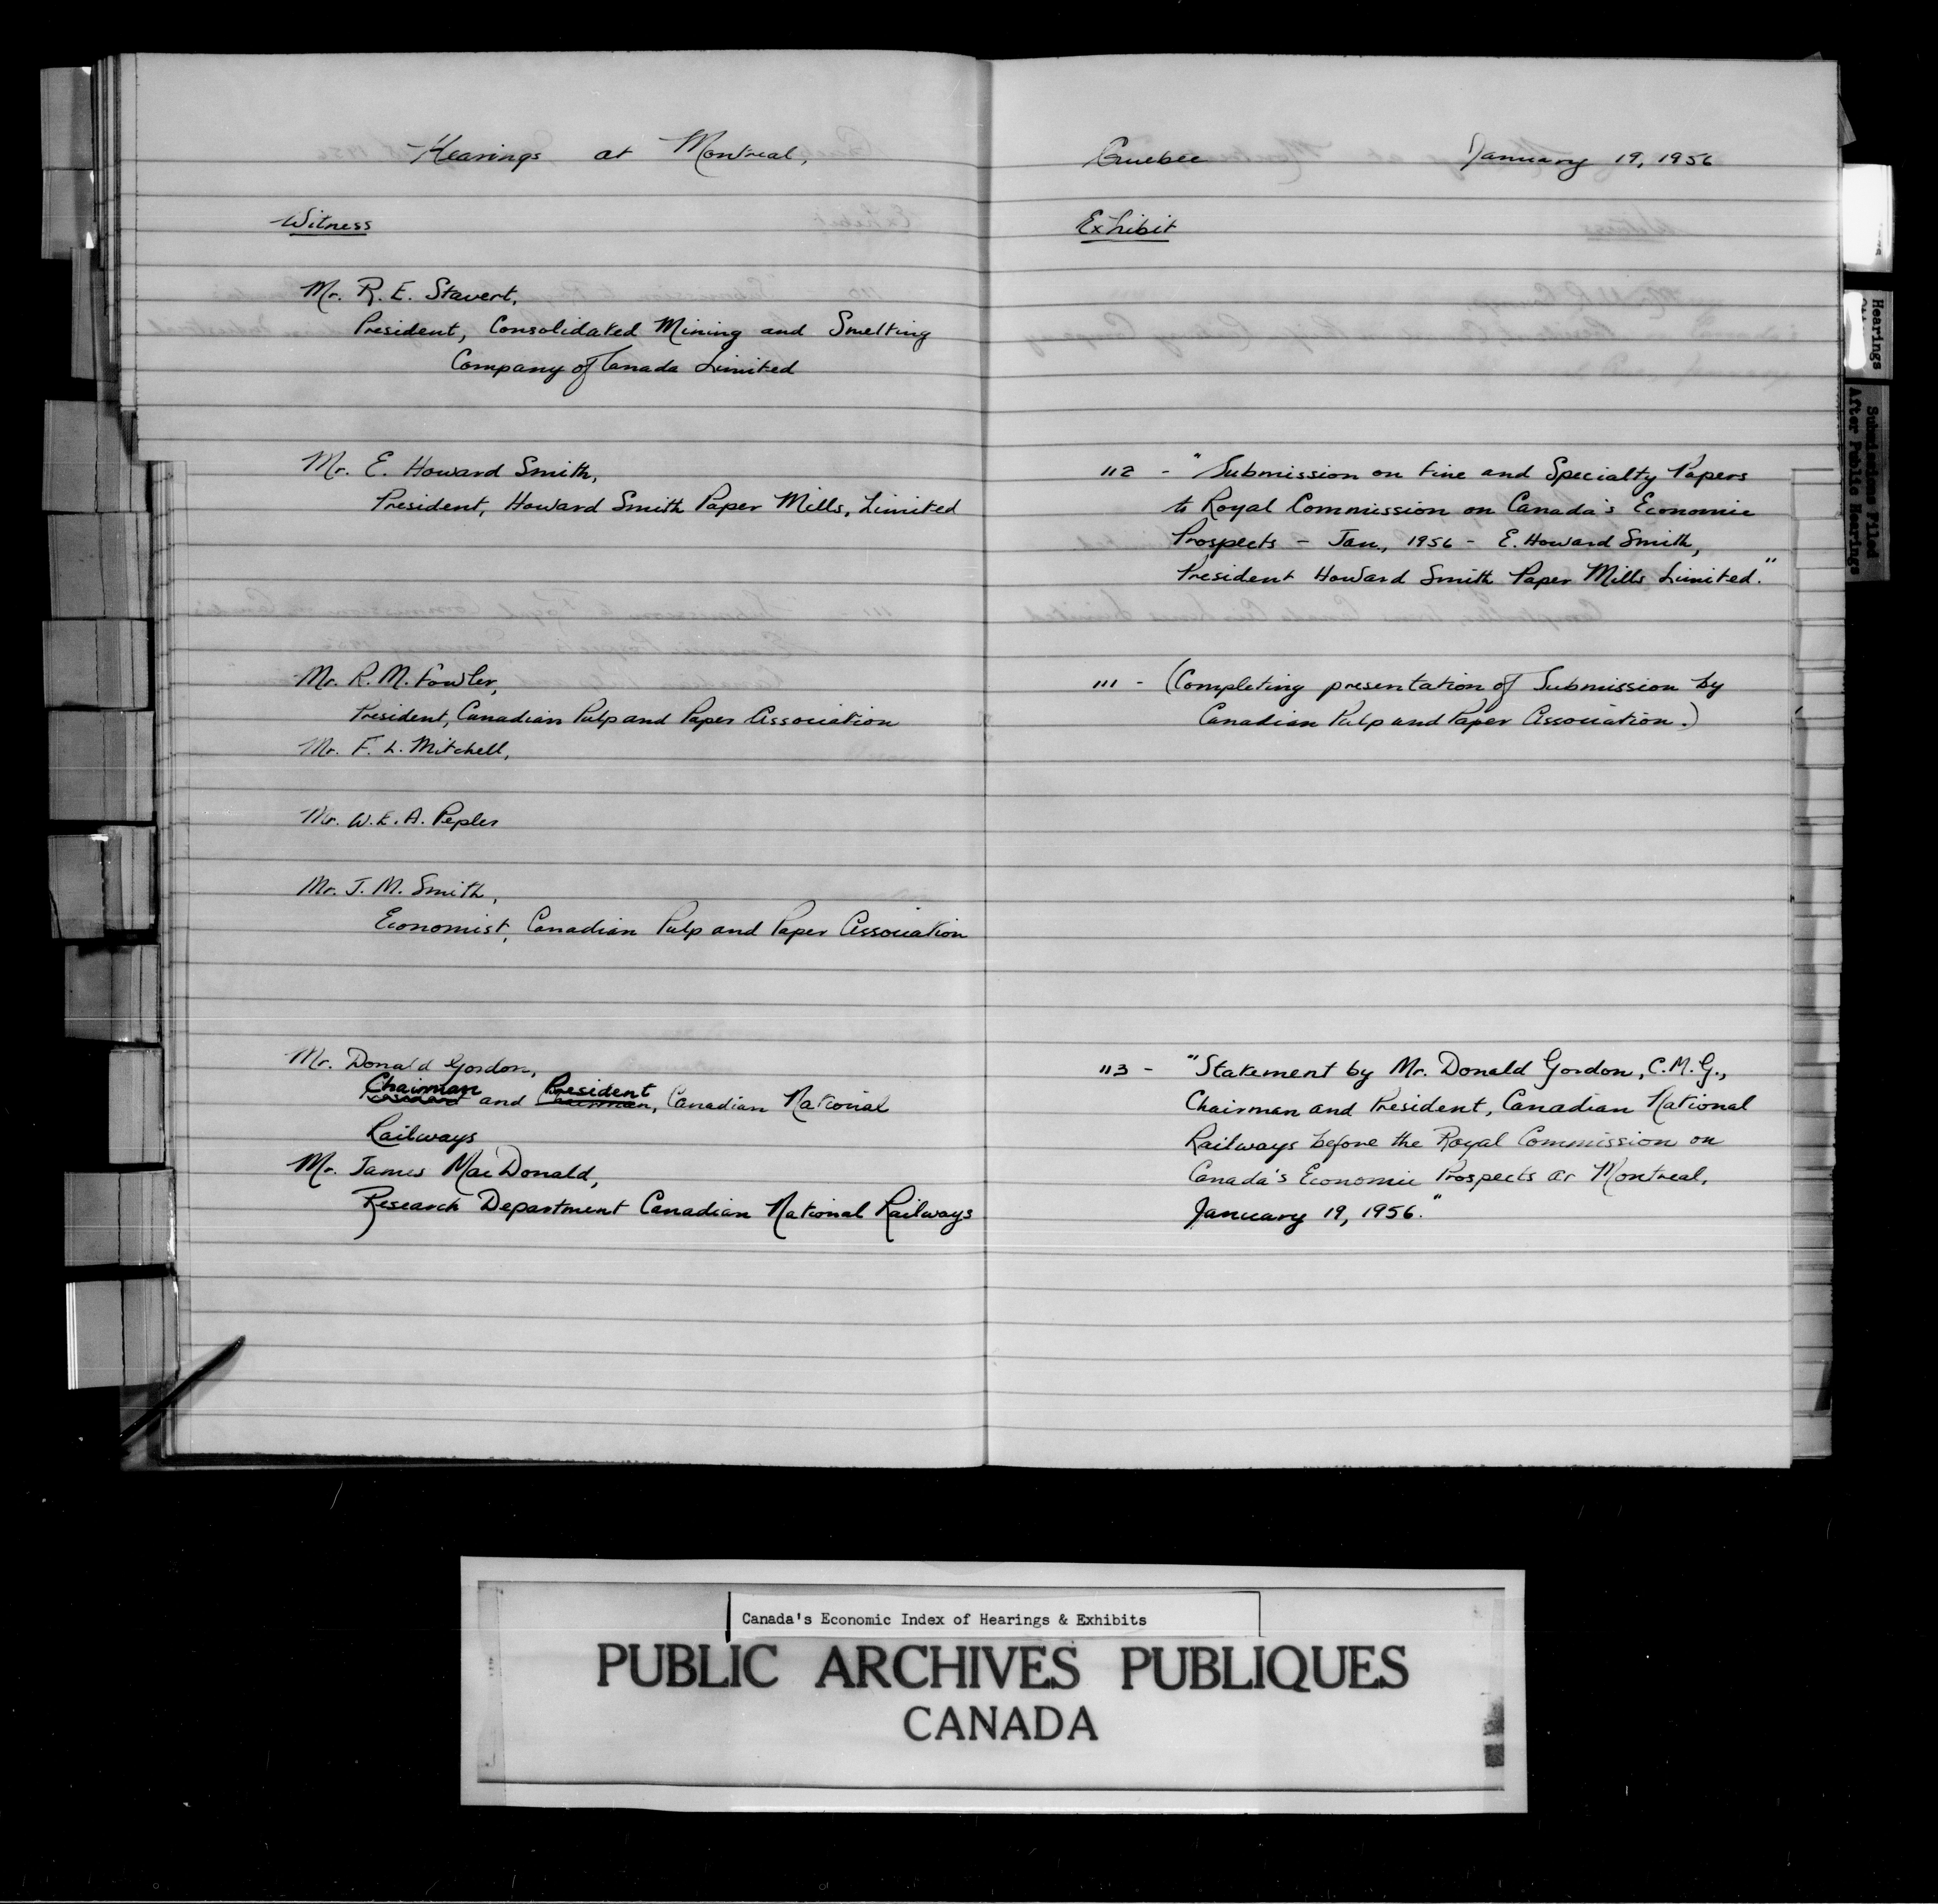 Hearings at Montreal,
Witness
Mr. R. E. Stavert,
President, Consolidated Mining and Smelting
Company of Canada Limited
Mr. E. Howard Smith,
President, Howard Smith Paper Mills, Limited
Mr. R. M. Fowler,
President, Canadian Pulp and Paper Association
Mr. F. L. Mitchell,
Mr. W. E. A. Pepler
Mr. J. M. Smith,
Economist, Canadian Pulp and Paper Association
Mr. Donald Gordon,
Chairman and President, Canadian National
Railways
Mr. James MacDonald,
Research Department Canadian National Railways
Quebec January 19, 1956
Exhibit
112 - "Submission on Fine and Specialty Papers
to Royal Commission on Canada's Economic
Prospects - Jan., 1956 - E. Howard Smith,
President Howard Smith Paper Mills Limited."
111 - (Completing presentation of Submission by
Canadian Pulp and Paper Association.)
113 - "Statement by Mr. Donald Gordon, C.M.G.,
Chairman and President, Canadian National
Railways before the Royal Commission on
Canada's Economic Prospects at Montreal,
January 19, 1956."
Hearings
Submissions Filed
After Public Hearings
Canada's Economic Index of Hearings & Exhibits
PUBLIC ARCHIVES PUBLIQUES
CANADA